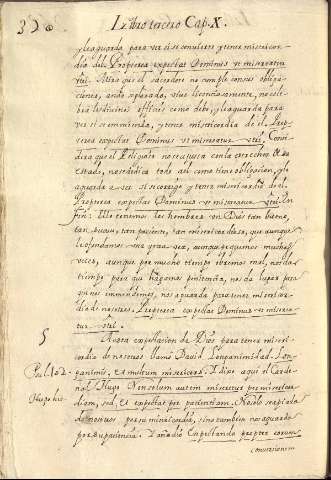 320
Libro tercero Cap. X.
y le aguarda para ver si se convierte, y tener misericor-
dia del. Propterea expectat Dominus ut misereatur
vestri. Mira que el sacerdote no cumple con sus obliga-
ciones, anda aplazado, vive licenciosamente, no cele-
bra los divinos officios como debe, y le aguarda para
ver si se enmienda, y tener misericordia de el. Prop-
terea expectat Dominus ut misereatur vestri. Consi-
dera que el Religioso no se ajusta con la estrechez de su
estado, no se dedica todo a el como tiene obligacion, y le
aguarda a ver si se corrige y tener misericordia de el.
Propterea expectat Dominus ut misereatur vestri. En
fin: tenemos los hombres un Dios tan bueno,
tan suave, tan paciente, tan misericordioso, que aunque
le ofendamos una y otra vez, aunque pequemos muchas
veces, aunque por mucho tiempo obremos mal, nos da
tiempo para que hagamos penitencia, nos da lugar para
que nos enmendemos, nos aguarda para tener misericor-
dia de nosotros. Propterea expectat Dominus ut miserea-
tur vestri.
5
A esta expectacion de Dios para tener miseri-
cordia de nosotros llamó David Longanimidad. Lon-
Psal. 102.
ganimis, et multum misericors. I dijo aqui el Carde-
Hugo hic
nal Hugo Non solum autem miseretur per misericor-
diam, sed, et expectat per patientiam. No solo se apiada
de nosotros por su misericordia, sino tambien nos aguarda
por su paciencia. I añadió Expectando propter eorum
conversionem